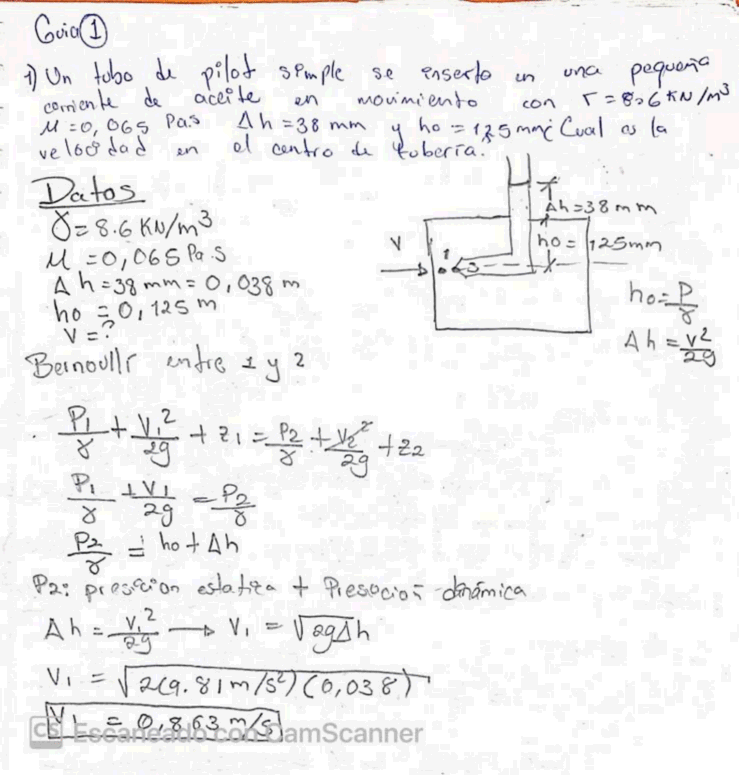 Guia ①
1) Un tubo de pilot simple se inserto en una pequeña
corriente de aceite en movimiento con τ = 8.6 KN/m³
M = 0,065 Pa.s Δh = 38 mm y ho = 125 mm ¿Cual es la
velocidad en el centro de tubería.
Datos
γ = 8.6 KN/m³
M = 0,065 Pa.s
Δh = 38 mm = 0,038 m
ho = 0,125 m
V = ?
Δh = 38 mm
V
1
ho = 125mm
ho = P/γ
Δh = v²/2g
Bernoulli entre 1 y 2
P₁/γ + V₁²/2g + z₁ = P₂/γ + V₂²/2g + z₂
P₁/γ + V₁/2g = P₂/γ
P₂/γ = ho + Δh
P₂: presicion estatica + Presocion dinámica
Δh = V₁²/2g → V₁ = √2gΔh
V₁ = √2(9.81m/s²)(0,038)
V₁ = 0,863 m/s
CS Escaneado con CamScanner